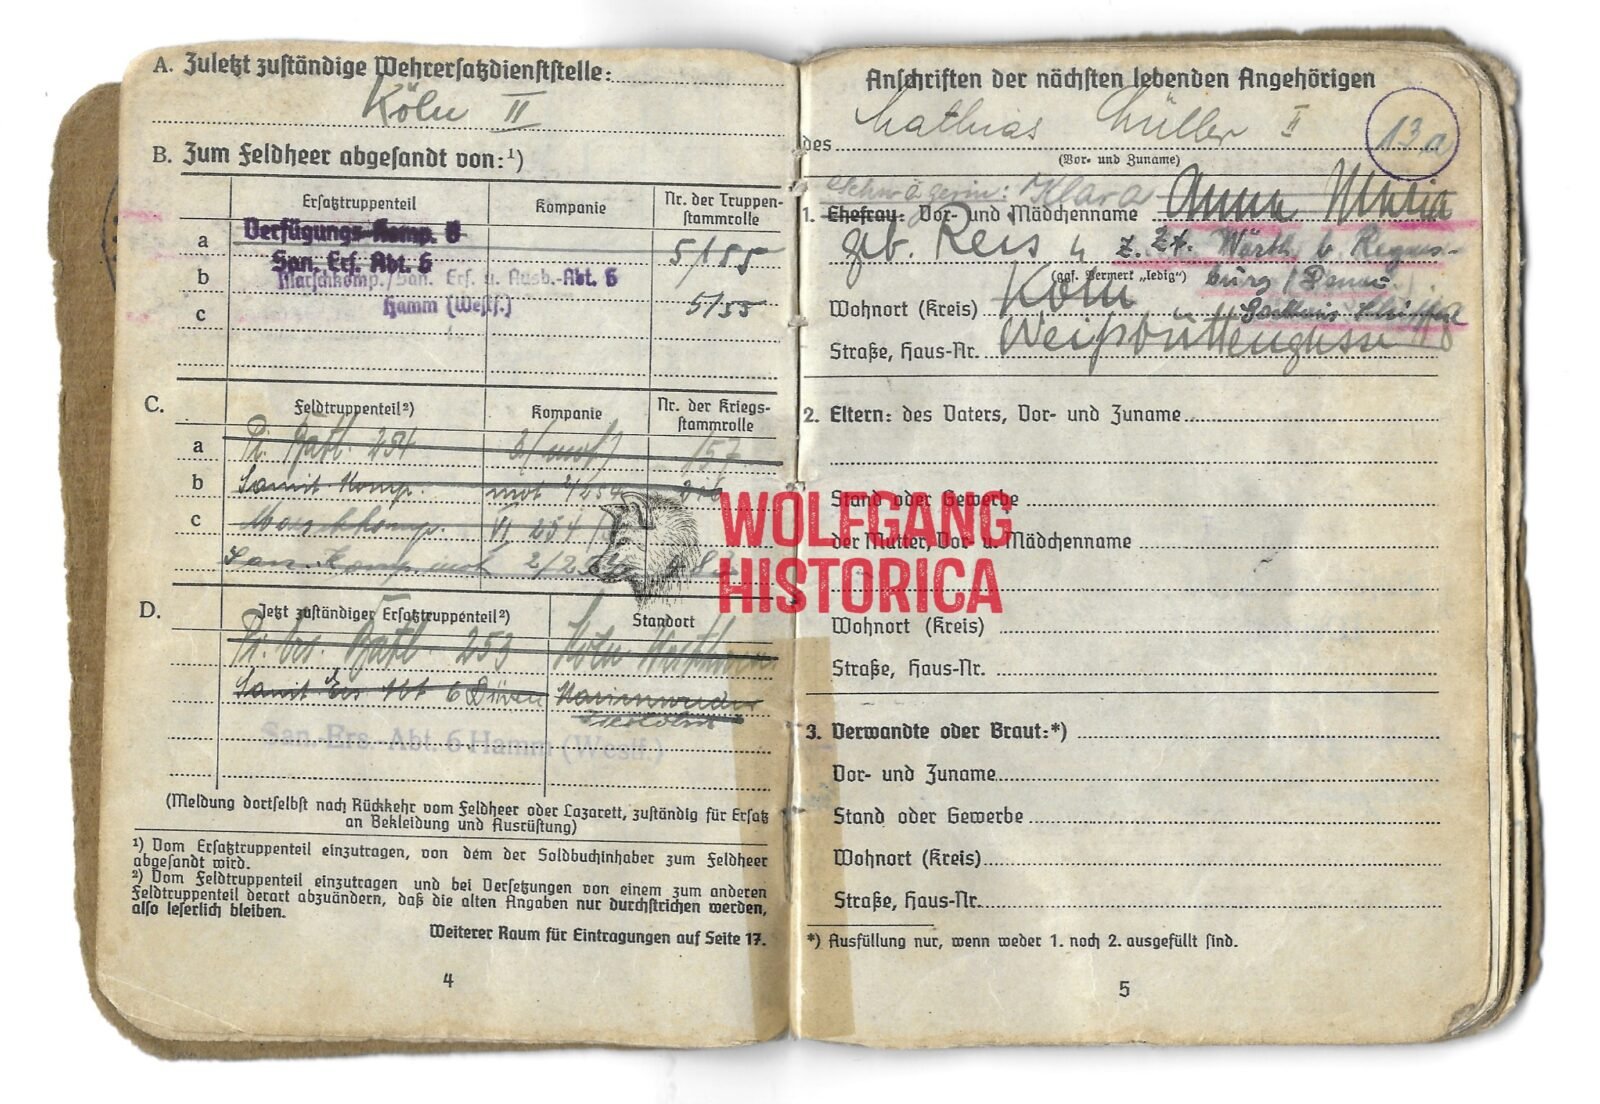 A. Zuletzt zuständige Wehrersatzdienststelle:
Köln II
B. Zum Feldheer abgesandt von:¹)
Ersatztruppenteil Kompanie Nr. der Truppen-
stammrolle
a Verfügungs-Komp. 5/155
San. Ers. Abt. 6
b Marschkomp./San. Ers. u. Ausb.-Abt. 6
c Hamm (Westf.) 5/55
C. Feldtruppenteil²) Kompanie Nr. der Kriegs-
stammrolle
a Batl. 254 157
b Sanit Komp. mot 2/254
c Marschkomp. VI 254
San. Komp. mot 2/
D. Jetzt zuständiger Ersatztruppenteil²) Standort
Ers. Batl. 253 Köln
Sanit Ers Abt 6 Düren
San.-Ers.-Abt. 6 Hamm (Westf.)
(Meldung dortselbst nach Rückkehr vom Feldheer oder Lazarett, zuständig für Ersatz
an Bekleidung und Ausrüstung)
¹) Vom Ersatztruppenteil einzutragen, von dem der Soldbuchinhaber zum Feldheer
abgesandt wird.
²) Vom Feldtruppenteil einzutragen und bei Versetzungen von einem zum anderen
Feldtruppenteil derart abzuändern, daß die alten Angaben nur durchstrichen werden,
also leserlich bleiben.
Weiterer Raum für Eintragungen auf Seite 17.
4
Anschriften der nächsten lebenden Angehörigen
des Mathias Müller II 13a
(Vor- und Zuname)
Schwägerin: Klara
1. Ehefrau: Vor- und Mädchenname Anna Maria
geb. Reis z. Zt. Wörth b. Regens-
(ggf. Vermerk „ledig") burg/Donau
Wohnort (Kreis) Köln
Straße, Haus-Nr. Weißbüttengasse
2. Eltern: des Vaters, Vor- und Zuname
Stand oder Gewerbe
der Mutter, Vor- u. Mädchenname
Wohnort (Kreis)
Straße, Haus-Nr.
3. Verwandte oder Braut:*)
Vor- und Zuname
Stand oder Gewerbe
Wohnort (Kreis)
Straße, Haus-Nr.
*) Ausfüllung nur, wenn weder 1. noch 2. ausgefüllt sind.
5
WOLFGANG
HISTORICA